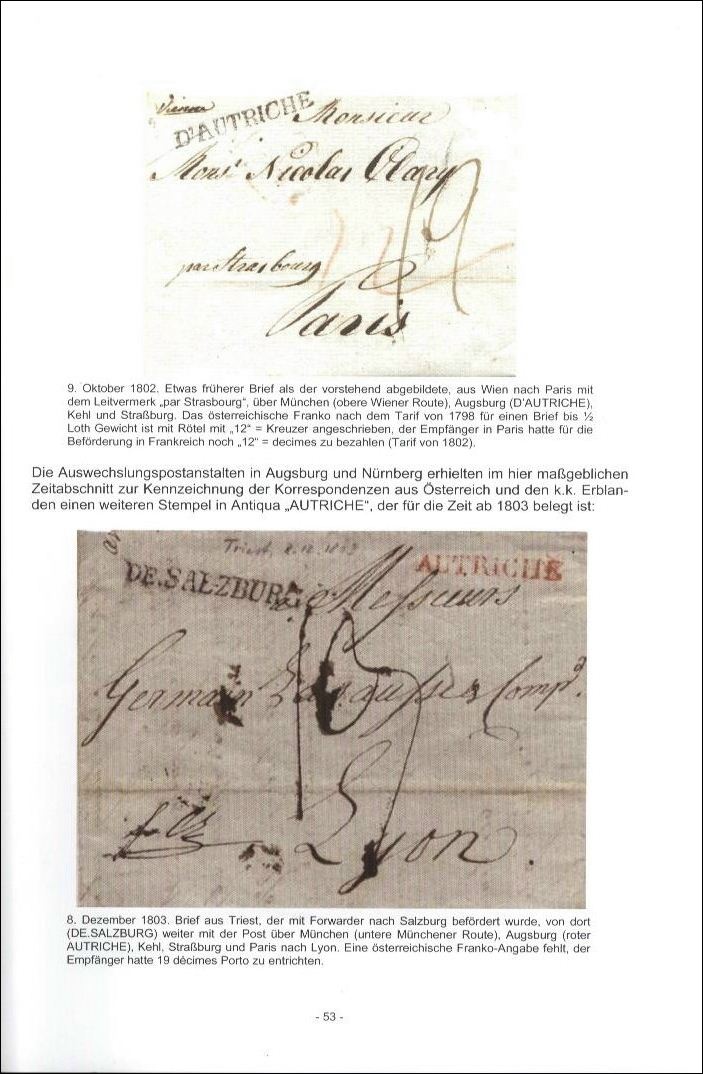 Vienne
D'AUTRICHE
Monsieur
Monsr Nicolas Clary
par Strasbourg
Paris
9. Oktober 1802. Etwas früherer Brief als der vorstehend abgebildete, aus Wien nach Paris mit
dem Leitvermerk „par Strasbourg“, über München (obere Wiener Route), Augsburg (D'AUTRICHE),
Kehl und Straßburg. Das österreichische Franko nach dem Tarif von 1798 für einen Brief bis ½
Loth Gewicht ist mit Rötel mit „12“ = Kreuzer angeschrieben, der Empfänger in Paris hatte für die
Beförderung in Frankreich noch „12“ = decimes zu bezahlen (Tarif von 1802).
Die Auswechslungspostanstalten in Augsburg und Nürnberg erhielten im hier maßgeblichen
Zeitabschnitt zur Kennzeichnung der Korrespondenzen aus Österreich und den k.k. Erblan-
den einen weiteren Stempel in Antiqua „AUTRICHE“, der für die Zeit ab 1803 belegt ist:
Triest, 8.12.1803
DE.SALZBURG
AUTRICHE
Messieurs
Germain Comp.
Lyon.
8. Dezember 1803. Brief aus Triest, der mit Forwarder nach Salzburg befördert wurde, von dort
(DE.SALZBURG) weiter mit der Post über München (untere Münchener Route), Augsburg (roter
AUTRICHE), Kehl, Straßburg und Paris nach Lyon. Eine österreichische Franko-Angabe fehlt, der
Empfänger hatte 19 décimes Porto zu entrichten.
- 53 -